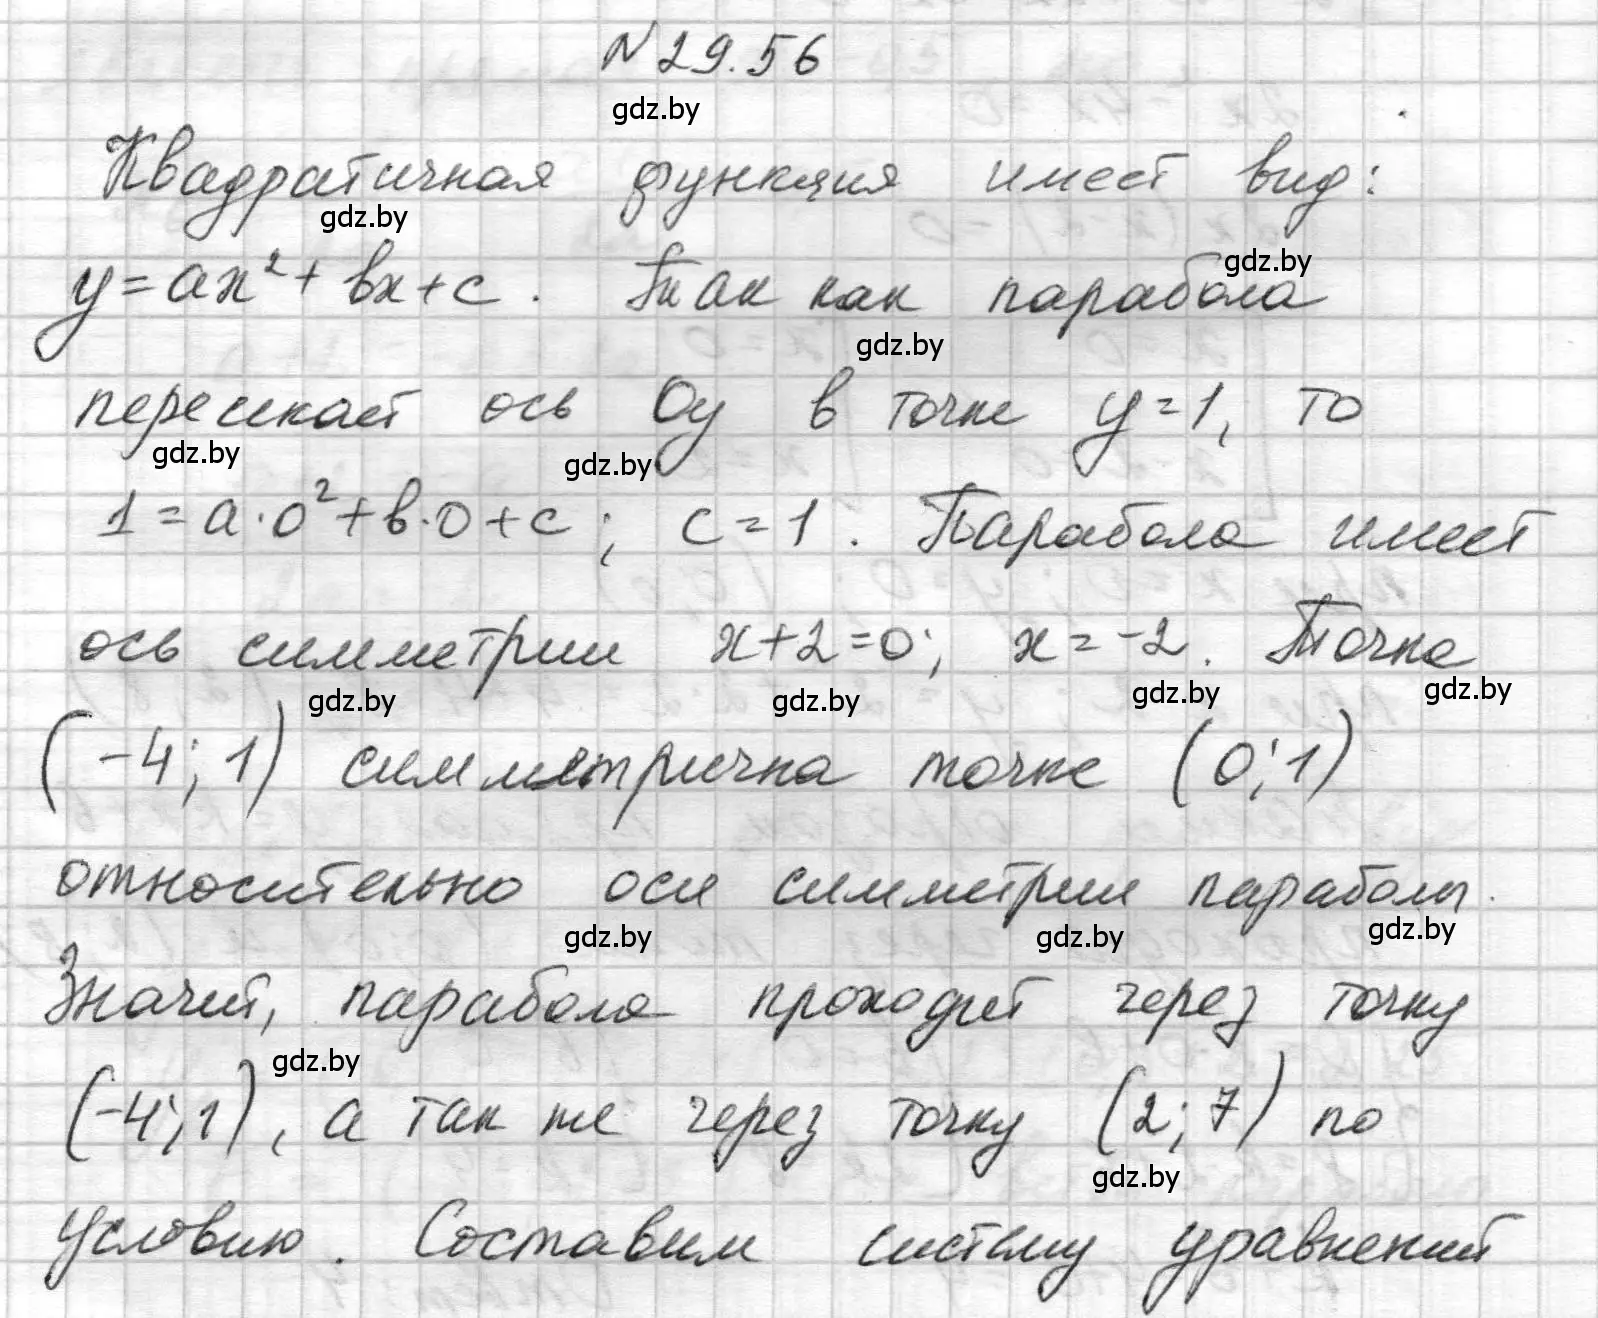 N 29.56
gdz.by
Квадратичная функция имеет вид:
gdz.by
gdz.by
y=ax²+bx+c. Так как парабола
gdz.by
пересекает ось Oy в точке y=1, то
gdz.by gdz.by
1=a·0²+b·0+c; c=1. Парабола имеет
ось симметрии x+2=0; x=-2. Точка
gdz.by gdz.by gdz.by gdz.by
(-4;1) симметрична точке (0;1)
относительно оси симметрии параболы.
gdz.by gdz.by gdz.by
Значит, парабола проходит через точку
gdz.by
(-4;1), а так же через точку (2;7) по
gdz.by
условию. Составим систему уравнений